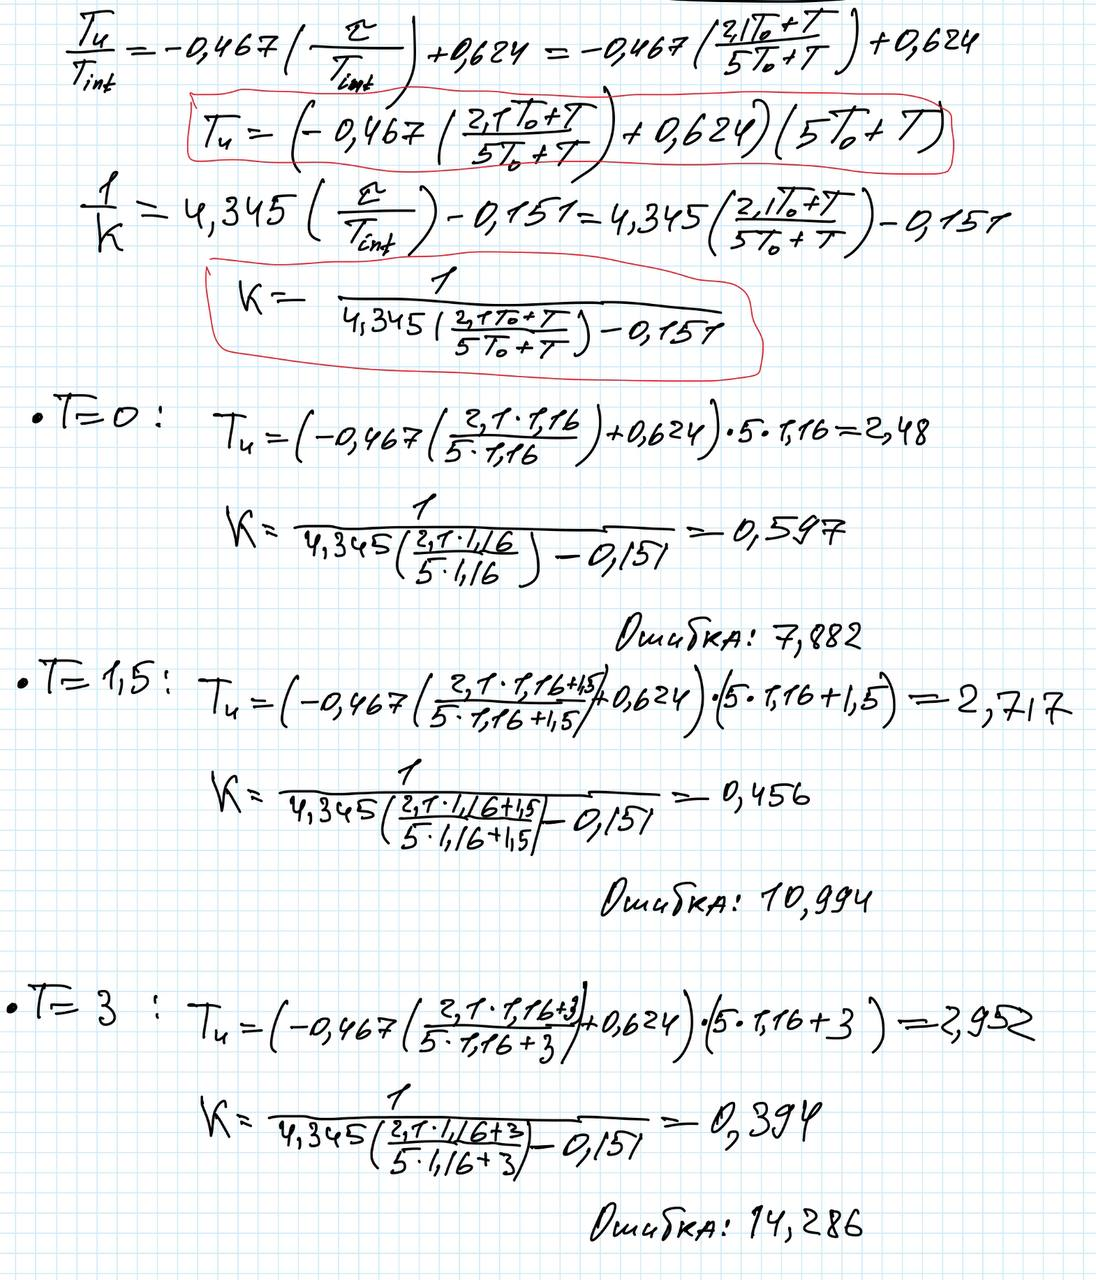 Tи/Tint = -0,467(τ/Tint) + 0,624 = -0,467((2,1T₀+T)/(5T₀+T)) + 0,624
Tи = (-0,467((2,1T₀+T)/(5T₀+T)) + 0,624)(5T₀+T)
1/k = 4,345(τ/Tint) - 0,151 = 4,345((2,1T₀+T)/(5T₀+T)) - 0,151
K = 1/(4,345((2,1T₀+T)/(5T₀+T)) - 0,151)
• T=0 : Tи = (-0,467((2,1·1,16)/(5·1,16)) + 0,624)·5·1,16 = 2,48
K = 1/(4,345((2,1·1,16)/(5·1,16)) - 0,151) = 0,597
Ошибка: 7,882
• T=1,5 : Tи = (-0,467((2,1·1,16+1,5)/(5·1,16+1,5)) + 0,624)·(5·1,16+1,5) = 2,717
K = 1/(4,345((2,1·1,16+1,5)/(5·1,16+1,5)) - 0,151) = 0,456
Ошибка: 10,994
• T=3 : Tи = (-0,467((2,1·1,16+3)/(5·1,16+3)) + 0,624)·(5·1,16+3) = 2,952
K = 1/(4,345((2,1·1,16+3)/(5·1,16+3)) - 0,151) = 0,394
Ошибка: 14,286